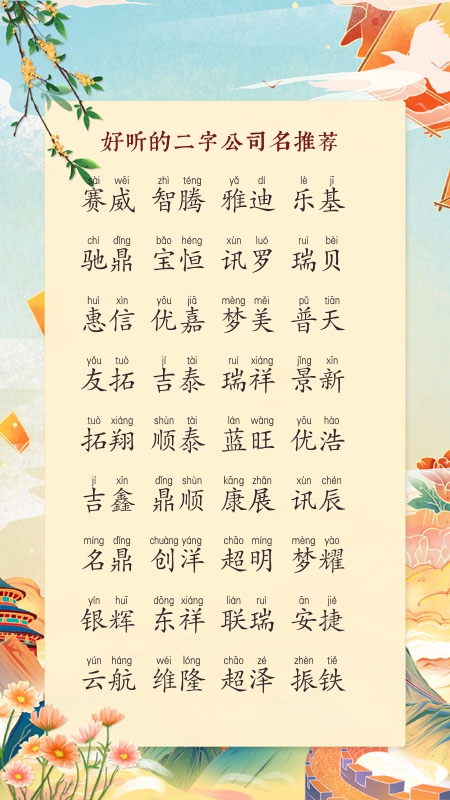 好听的二字公司名推荐
sài wēi zhì téng yǎ dí lè jī
赛威 智腾 雅迪 乐基
chí dǐng bǎo héng xùn luó ruì bèi
驰鼎 宝恒 讯罗 瑞贝
huì xìn yōu jiā mèng měi pǔ tiān
惠信 优嘉 梦美 普天
yǒu tuò jí tài ruì xiáng jǐng xīn
友拓 吉泰 瑞祥 景新
tuò xiáng shùn tài lán wàng yōu hào
拓翔 顺泰 蓝旺 优浩
jí xīn dǐng shùn kāng zhǎn xùn chén
吉鑫 鼎顺 康展 讯辰
míng dǐng chuàng yáng chāo míng mèng yào
名鼎 创洋 超明 梦耀
yín huī dōng xiáng lián ruì ān jié
银辉 东祥 联瑞 安捷
yún háng wéi lóng chāo zé zhèn tiě
云航 维隆 超泽 振铁